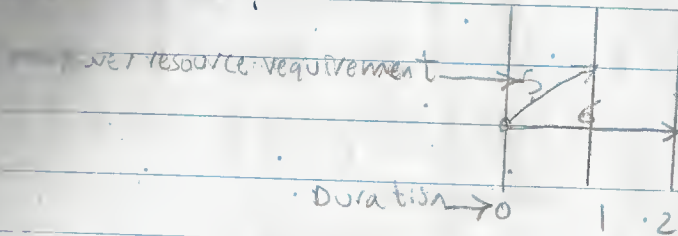 NET resource requirement 5
6
Duration 0 1 2